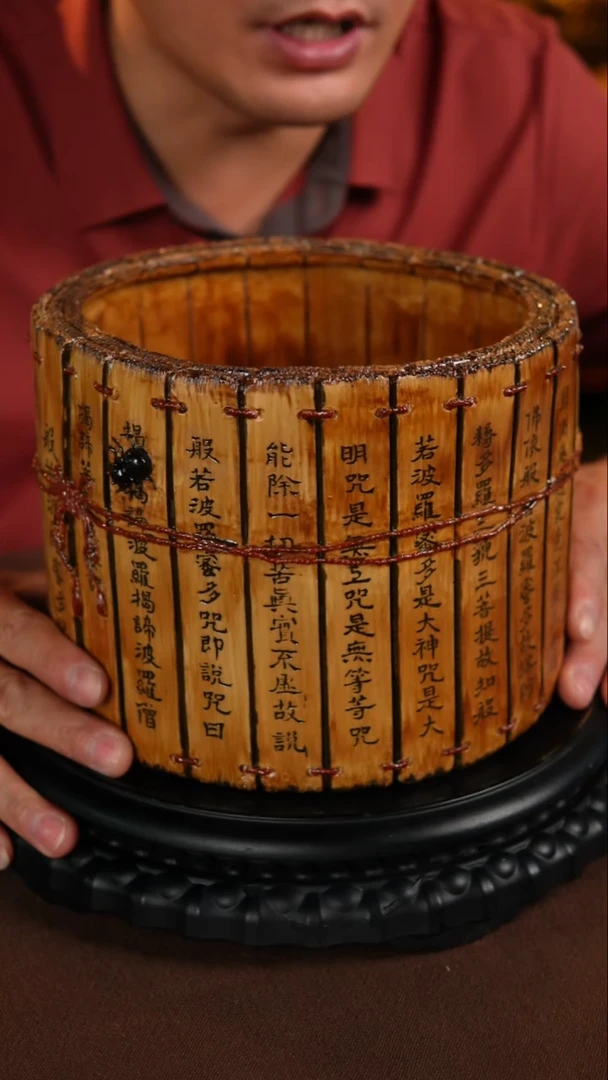 耨多羅三藐三菩提故知般
若波羅蜜多是大神咒是大
明咒是無上咒是無等等咒
能除一切苦眞實不虛故說
般若波羅蜜多咒即說咒曰
揭揭諦波羅揭諦波羅僧
揭諦菩
般